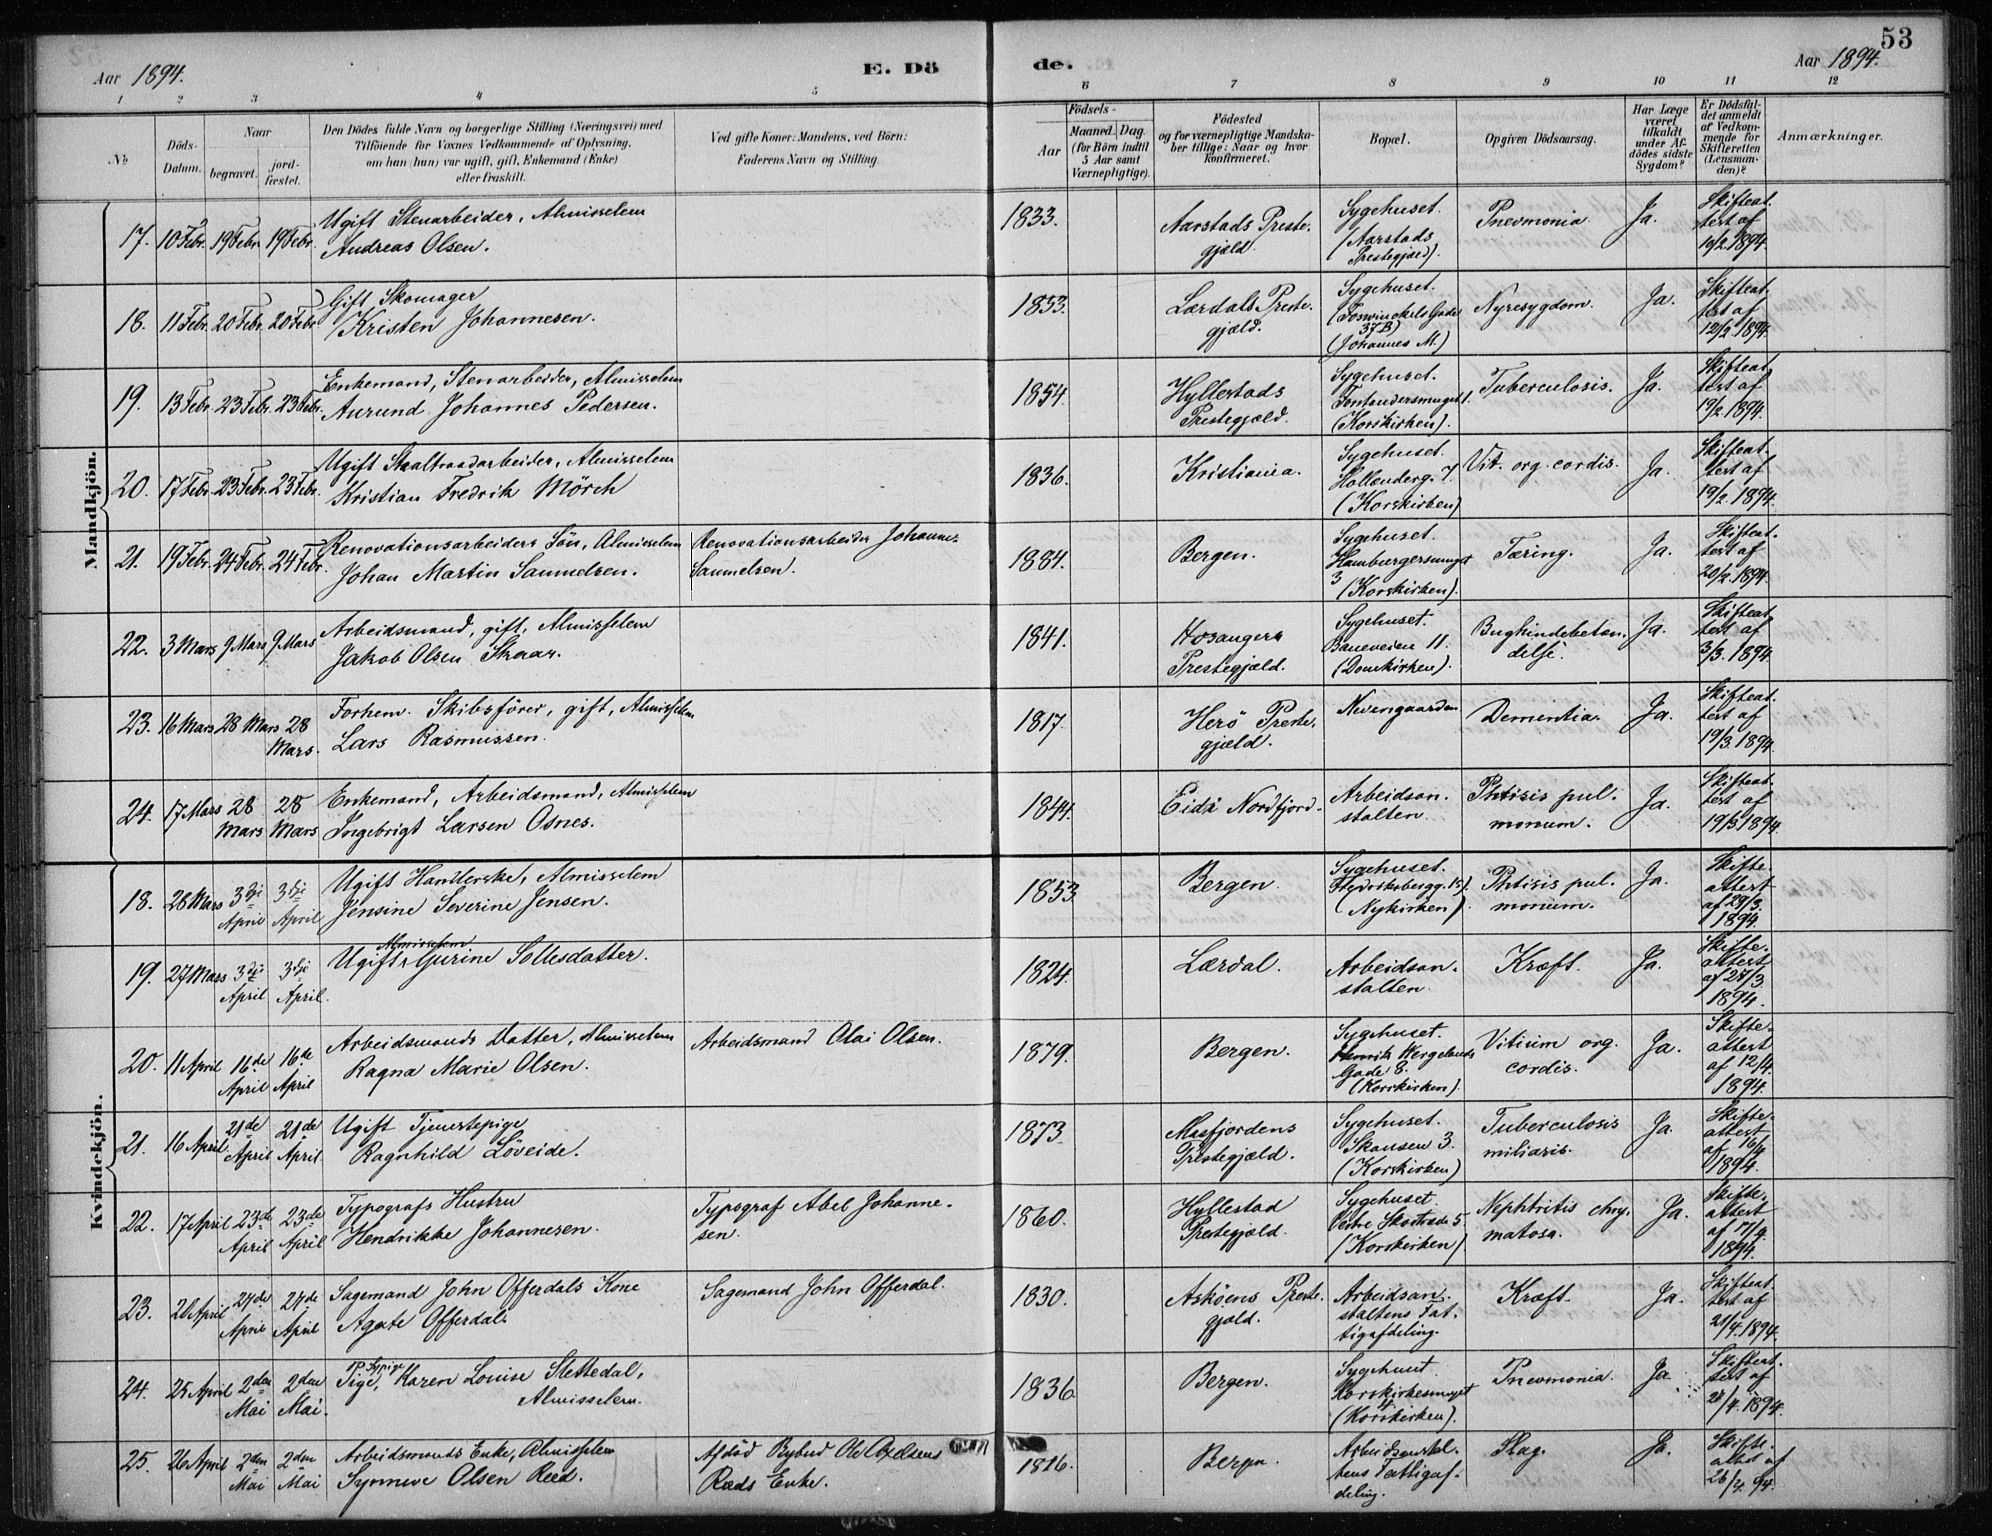 53
Aar 1894. E. Dö de. Aar 1894.
1 2 3 4 5 6 7 8 9 10 11 12
No
Döds-Datum.
Naar
begravet.
jord-fæstet.
Den Dödes fulde Navn og borgerlige Stilling (Næringsvei) med
Tilföiende for Voxnes Vedkommende af Oplysning,
om han (hun) var ugift, gift, Enkemand (Enke)
eller fraskilt.
Ved gifte Koner: Mandens, ved Börn:
Faderens Navn og Stilling.
Födsels-
Aar
Maaned. Dag.
(for Börn indtil
5 Aar samt
Værnepligtige).
Födested
og for værnepligtige Mandska-
ber tillige: Naar og hvor
konfirmeret.
Bopæl.
Opgiven Dödsaarsag.
Har Læge
været
tilkaldt
under Af-
dödes sidste
Sygdom?
Er Dödsfal-
det anmeldt
af Vedkom-
mende for
Skifteretten
(Lensman-
den)?
Anmærkninger.
Mandkjön.
17. 10 Febr. 19 Febr. 19 Febr.
Ugift Stenarbeider, Almisselem
Andreas Olsen.
1833.
Aarstads Preste-
gjæld.
Sygehuset.
(Aarstads
Prestegjæld).
Pnevmonia
Ja.
Skifteat-
test af
10/2. 1894.
18. 11 Febr. 20 Febr. 20 Febr.
Gift Skomager
Kristen Johannesen.
1853.
Lærdals Preste-
gjæld.
Sygehuset.
(Foswinckels Gade
37 B)
(Johannes M.)
Nyresygdom.
Ja.
Skifteat-
test af
12/2. 1894.
19. 13 Febr. 23 Febr. 23 Febr.
Enkemand, Stenarbeider, Almisselem
Aurund Johannes Pedersen.
1854.
Hyllestads
Prestegjæld.
Sygehuset.
(Korskirken).
Tuberculosis.
Ja.
Skifteat-
test af
19/2. 1894.
20. 17 Febr. 23 Febr. 23 Febr.
Ugift Staaltraadarbeider, Almisselem
Kristian Fredrik Mörch
1836.
Kristiania.
Sygehuset.
Hollenderg. 7.
(Korskirken)
Vit. org. cordis.
Ja.
Skifteat-
test af
19/2. 1894.
21. 19 Febr. 24 Febr. 24 Febr.
Renovationsarbeiders Sön, Almisselem
Johan Martin Samuelsen.
Renovationsarbeider Johannes
Samuelsen.
1884.
Bergen.
Sygehuset.
Hamburgersmuget
3
(Korskirken).
Tæring.
Ja.
Skifteat-
test af
20/2. 1894.
22. 3 Mars 9 Mars 9 Mars
Arbeidsmand, gift, Almisselem
Jakob Olsen Skaar.
1841.
Hosangers
Prestegjæld.
Sygehuset.
Baneveien 11.
(Domkirken).
Bughindebetæn-
delse.
Ja.
Skifteat-
test af
3/3. 1894.
23. 16 Mars 28 Mars 28 Mars.
Forhenv. Skibsförer, gift, Almisselem
Lars Rasmussen.
1817.
Herö Preste-
gjæld.
Nevengaarden
Dementia.
Ja.
Skifteat-
test af
19/3. 1894.
24. 17 Mars 28 Mars 28 Mars
Enkemand, Arbeidsmand, Almisselem
Ingebrigt Larsen Osnes.
1844.
Eids Nordfjord.
Arbeidsan-
stalten.
Phtisis pul-
monum.
Ja.
Skifteat-
test af
19/3 1894.
Kvindekjön.
18. 28 Mars 3dje April 3dje April
Ugift Handlerske, Almisselem
Jensine Severine Jensen.
1853
Bergen.
Sygehuset.
(Nykirken).
Phtisis pul-
monum.
Ja.
Skifte
attest
af 29/3.
1894.
19. 27 Mars 3dje April 3dje April.
Almisselem
Ugift, Gurine Soltesdatter.
1824.
Lærdal.
Arbeidsan-
stalten.
Kræft.
Ja.
Skifte-
attest
af 27/3
1894.
20. 11 April 16de April 16de April
Arbeidsmands Datter, Almisselem
Ragna Marie Olsen.
Arbeidsmand Olai Olsen.
1879.
Bergen.
Sygehuset.
Henrik Wergelands
Gade 8.
(Korskirken).
Vitium org.
cordis.
Ja.
Skifte-
attest
af 12/4
1894.
21. 16 April 21de April 21de April
Ugift Tjenestepige
Ragnhild Löveide.
1873.
Masfjordens
Prestegjæld.
Sygehuset.
Skansen 3.
(Korskirken)
Tuberculosis
miliaris.
Ja.
Skifte-
attest
af 16/4
1894.
22. 17 April 23de April 23de April
Typografs Hustru
Hendrikke Johannesen.
Typograf Abel Johanne-
sen.
1860.
Hyllestad
Prestegjæld.
Sygehuset
(Korskirken)
Nephtritis chry-
matosa.
Ja.
Skifte-
attest
af 17/4.
1894.
23. 20 April 27de April 27de April
Sagemand John Offerdals Kone
Agate Offerdal.
Sagemand John Offerdal.
1830.
Askøens Preste-
gjæld.
Arbeidsan-
staltens Fat-
tigafdeling.
Kræft.
Ja.
Skifteat-
test af
21/4. 1894.
24. 25 April 2den Mai 2den Mai.
Pige, Karen Louise Slettedal,
Almisselem.
1836
Bergen.
Sygehuset
Korskirkesmuget
4
(Korskirken).
Pnevmonia.
Ja
Skifteat-
test af
27/4. 1894.
25. 26 April 2den Mai 2den Mai
Arbeidsmands Enke, Almisselem
Synneve Olsen Reed.
Afdöd Bybud Ole Axelsens
Ræds Enke.
1816.
Bergen.
Arbeidsanstal-
tens Fattigaf-
deling.
Slag.
Ja.
Skifte-
attest af
26/4. 94.